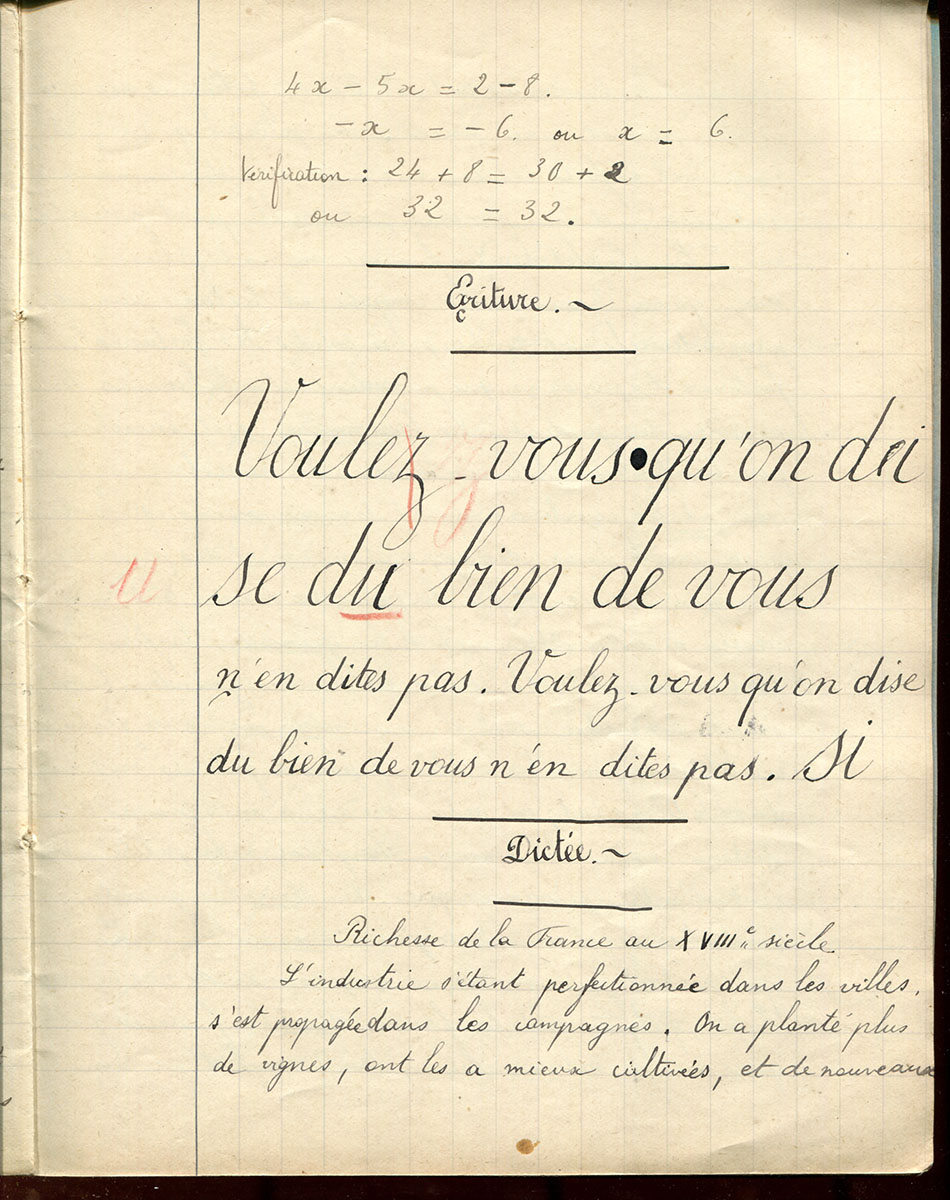 4x - 5x = 2 - 8.
-x = - 6. ou x = 6.
Vérification : 24 + 8 = 30 + 2
ou 32 = 32.
Ecriture. ~
Voulez-vous•qu'on di
se du bien de vous
n'en dites pas. Voulez-vous qu'on dise
du bien de vous n'en dites pas. Si
Dictée. ~
Richesse de la France au XVIIIe siècle
L'industrie s'étant perfectionnée dans les villes,
s'est propagée dans les campagnes. On a planté plus
de vignes, ont les a mieux cultivées, et de nouveaux
u